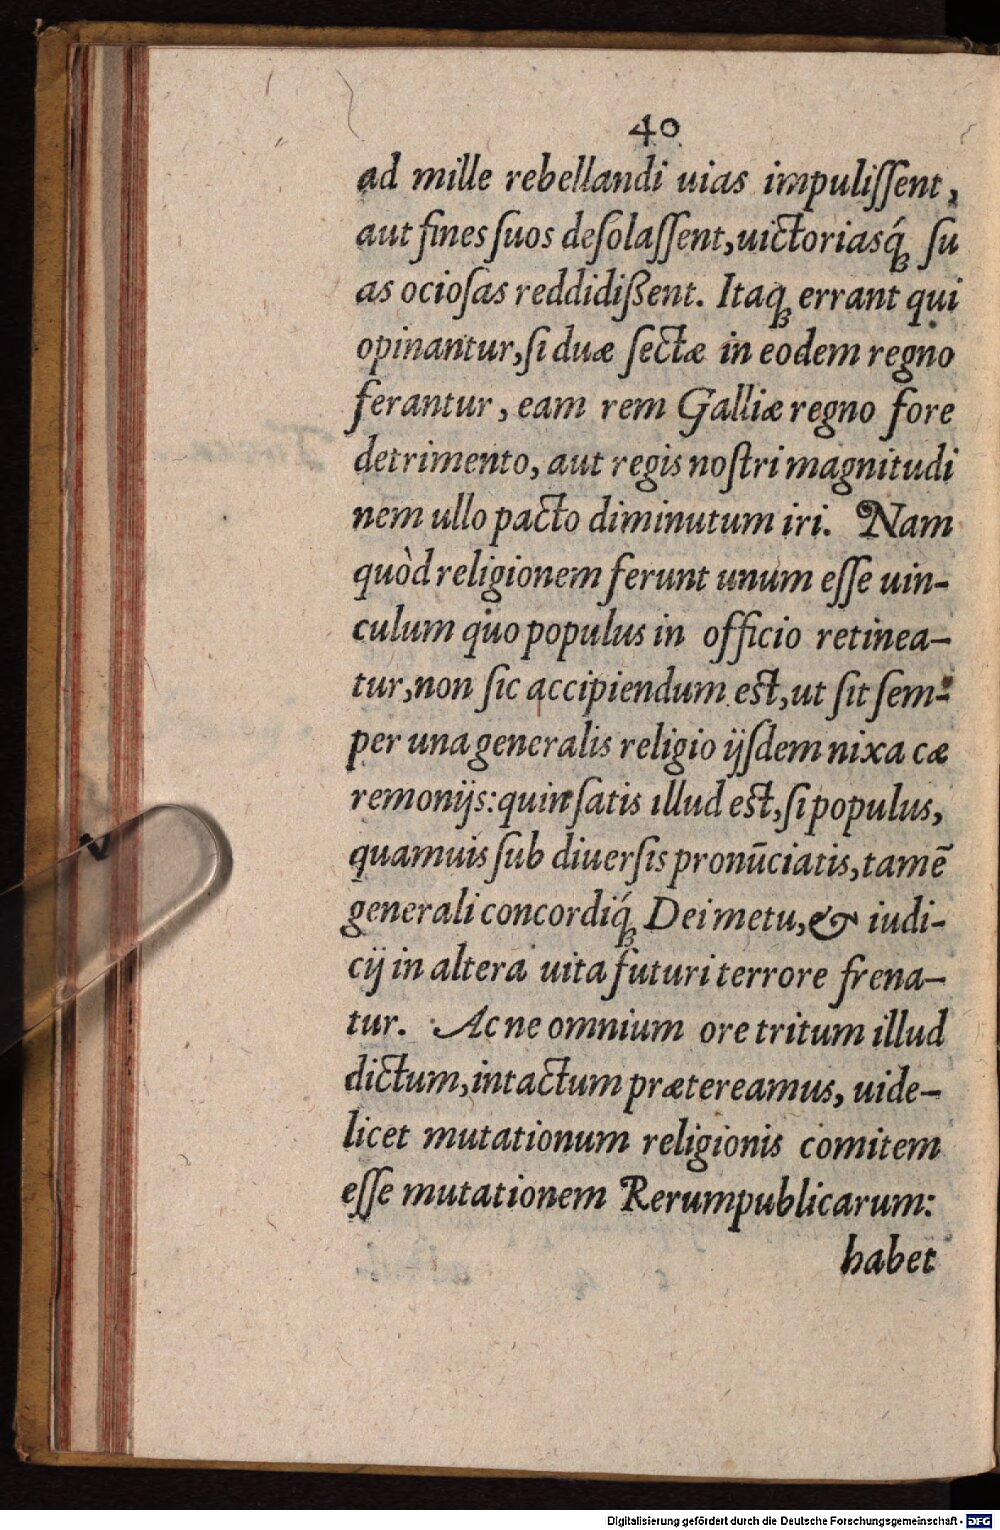 40
ad mille rebellandi uias impuliſſent,
aut fines ſuos deſolaſſent, uictoriasq́ꝫ ſu
as ocioſas reddidißent. Itaqꝫ errant qui
opinantur, ſi duæ ſectæ in eodem regno
ferantur, eam rem Galliæ regno fore
detrimento, aut regis noſtri magnitudi
nem ullo pacto diminutum iri. Nam
quòd religionem ferunt unum eſſe uin-
culum quo populus in officio retinea-
tur, non ſic accipiendum eſt, ut ſit ſem-
per una generalis religio ijſdem nixa cæ
remonijs: quin ſatis illud eſt, ſi populus,
quamuis ſub diuerſis pronūciatis, tamē
generali concordiq́ꝫ Dei metu, & iudi-
cij in altera uita futuri terrore frena-
tur. Ac ne omnium ore tritum illud
dictum, intactum prætereamus, uide-
licet mutationum religionis comitem
eſſe mutationem Rerumpublicarum:
habet
Digitalisierung gefördert durch die Deutsche Forschungsgemeinschaft - DFG